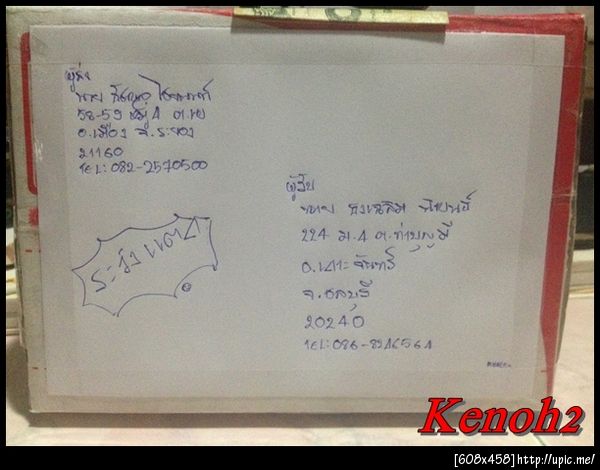 ผู้ส่ง
นาย
58-59 หมู่ 4 ต.เพ
อ.เมือง จ.ระยอง
21160
TEL: 082-2570500
ระวังแตก
ผู้รับ
นาย
224 ม.4 ต.ท่าบุญมี
อ.เกาะจันทร์
จ.ชลบุรี
20240
TEL: 086-8246564
Kenoh2
[608x458]http://upic.me/